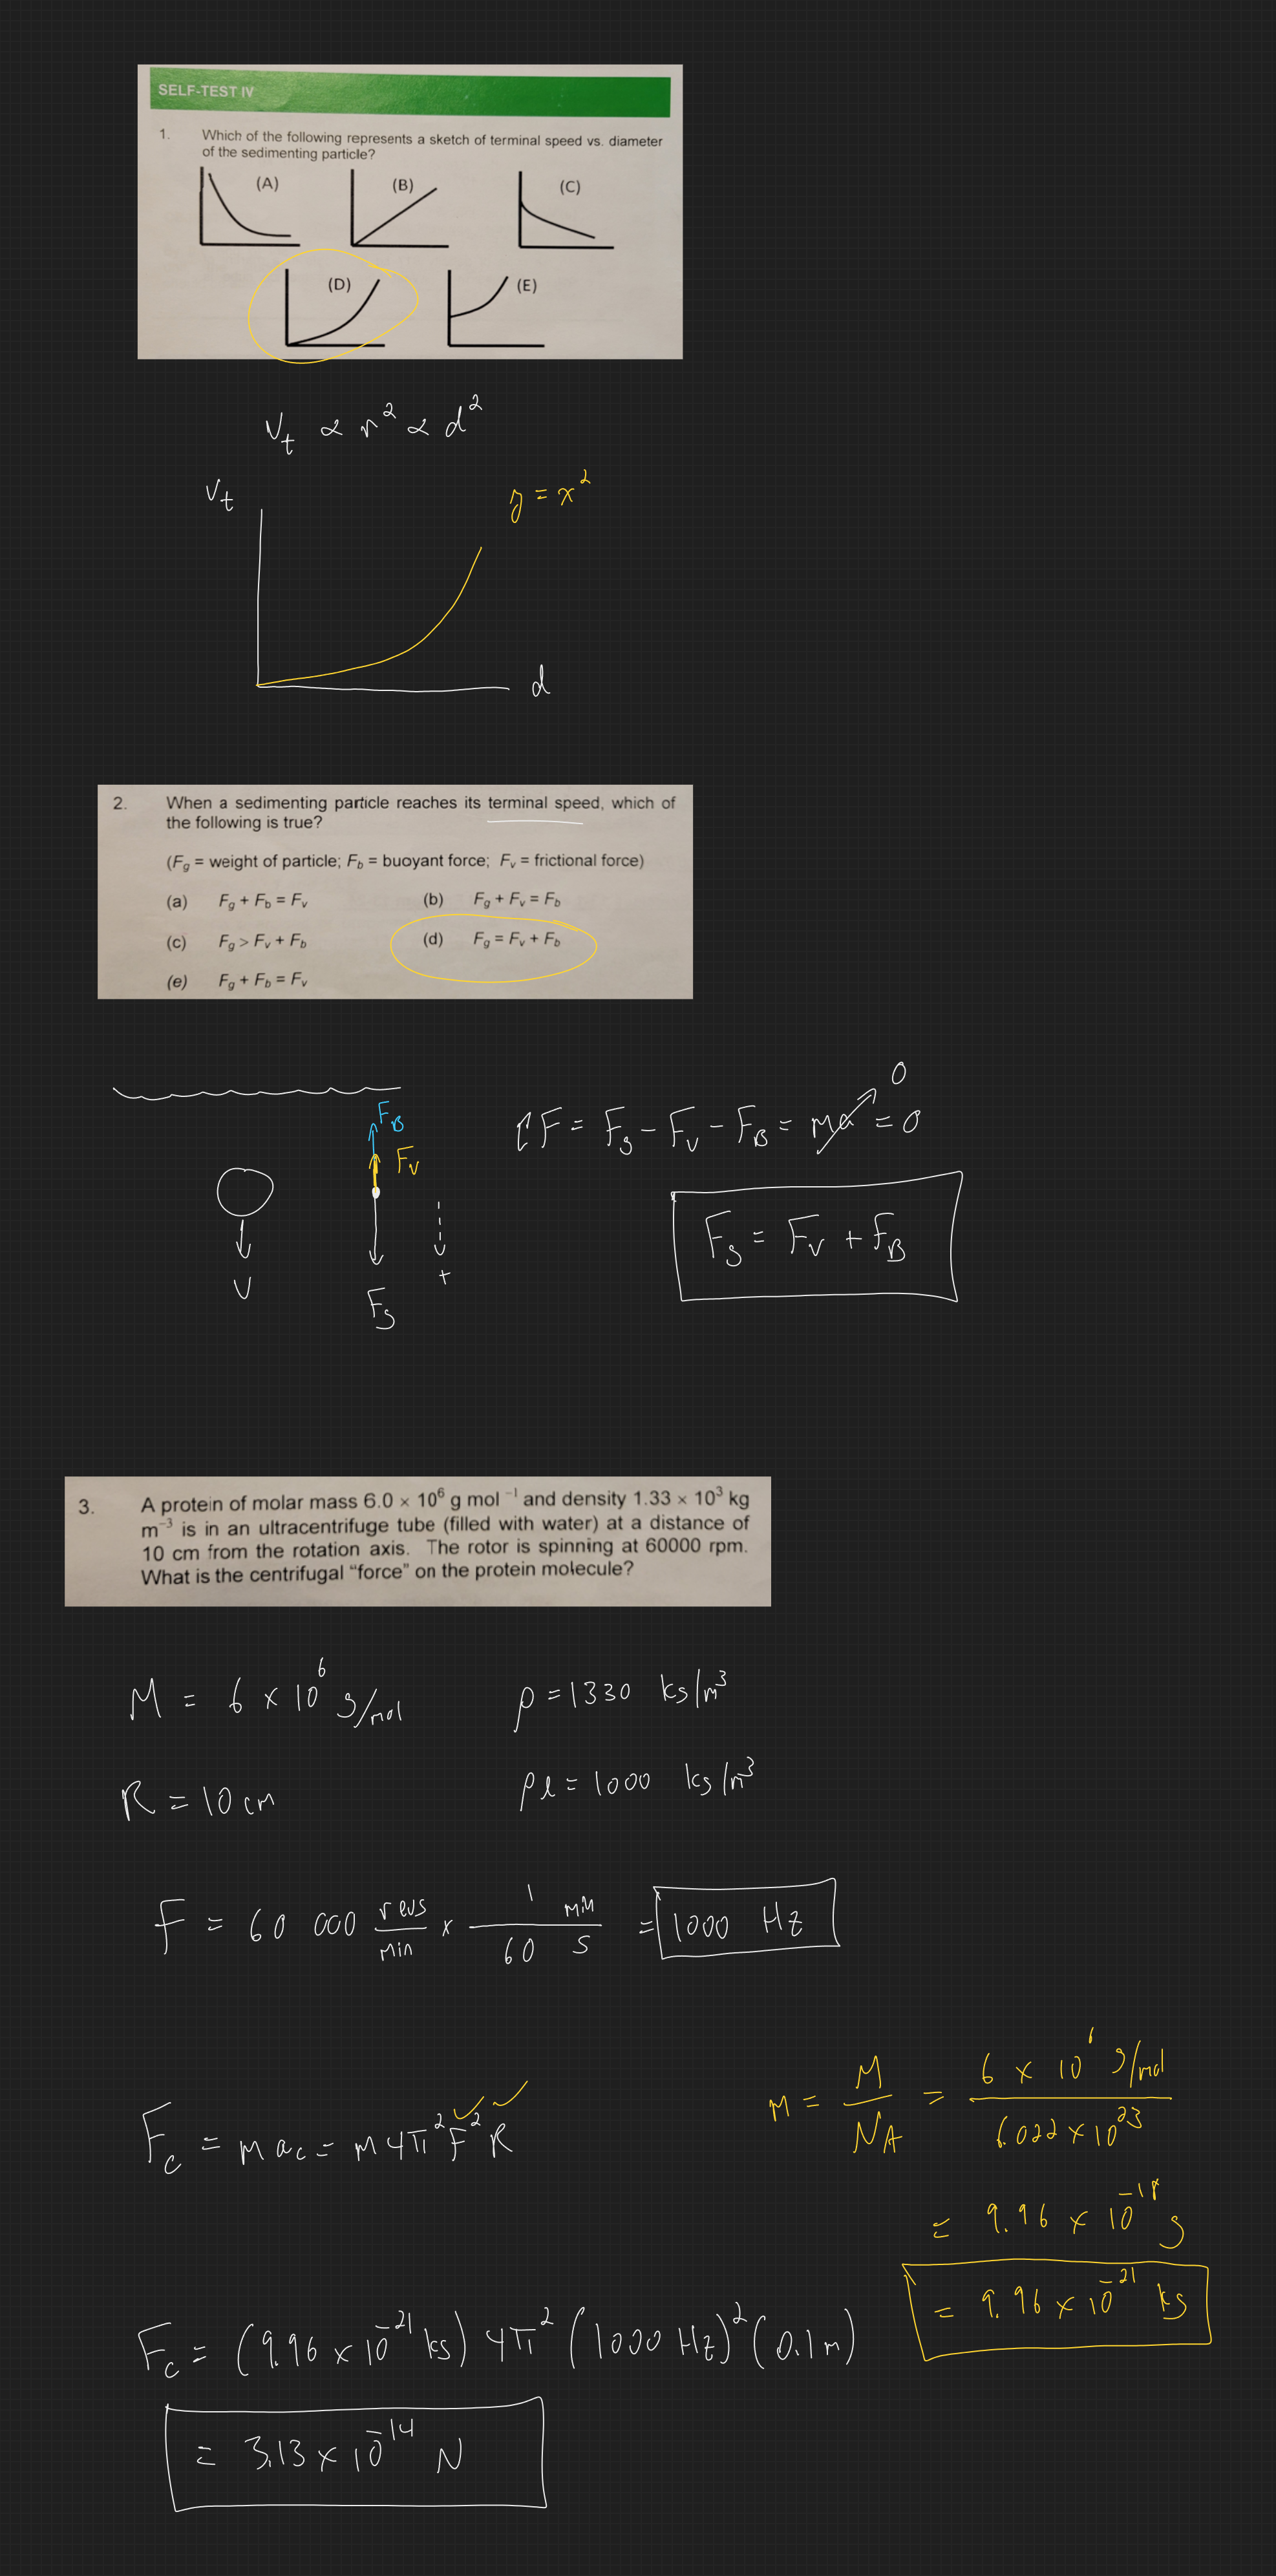 SELF-TEST IV
1. Which of the following represents a sketch of terminal speed vs. diameter
of the sedimenting particle?
(A) (B) (C)
(D) (E)
V_t ∝ r² ∝ d²
V_t
y = x²
d
2. When a sedimenting particle reaches its terminal speed, which of
the following is true?
(F_g = weight of particle; F_b = buoyant force; F_v = frictional force)
(a) F_g + F_b = F_v (b) F_g + F_v = F_b
(c) F_g > F_v + F_b (d) F_g = F_v + F_b
(e) F_g + F_b = F_v
F_B
F_V
V
F_g
+
ΣF = F_g - F_V - F_B = ma = 0
0
F_g = F_V + F_B
3. A protein of molar mass 6.0 × 10⁶ g mol⁻¹ and density 1.33 × 10³ kg
m⁻³ is in an ultracentrifuge tube (filled with water) at a distance of
10 cm from the rotation axis. The rotor is spinning at 60000 rpm.
What is the centrifugal “force” on the protein molecule?
M = 6 × 10⁶ g/mol ρ = 1330 kg/m³
R = 10 cm ρl = 1000 kg/m³
F = 60 000 revs/min × 1 min/60 s = 1000 Hz
F_c = m a_c = m 4π² F² R
m = M/N_A = 6 × 10⁶ g/mol / 6.022 × 10²³
= 9.96 × 10⁻¹⁸ g
= 9.96 × 10⁻²¹ kg
F_c = (9.96 × 10⁻²¹ kg) 4π² (1000 Hz)² (0.1m)
= 3.13 × 10⁻¹⁴ N